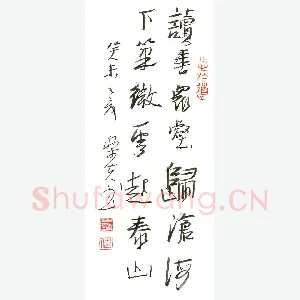 讀書眾壑歸滄海
下筆微雲起泰山
癸未
Shufawang.CN